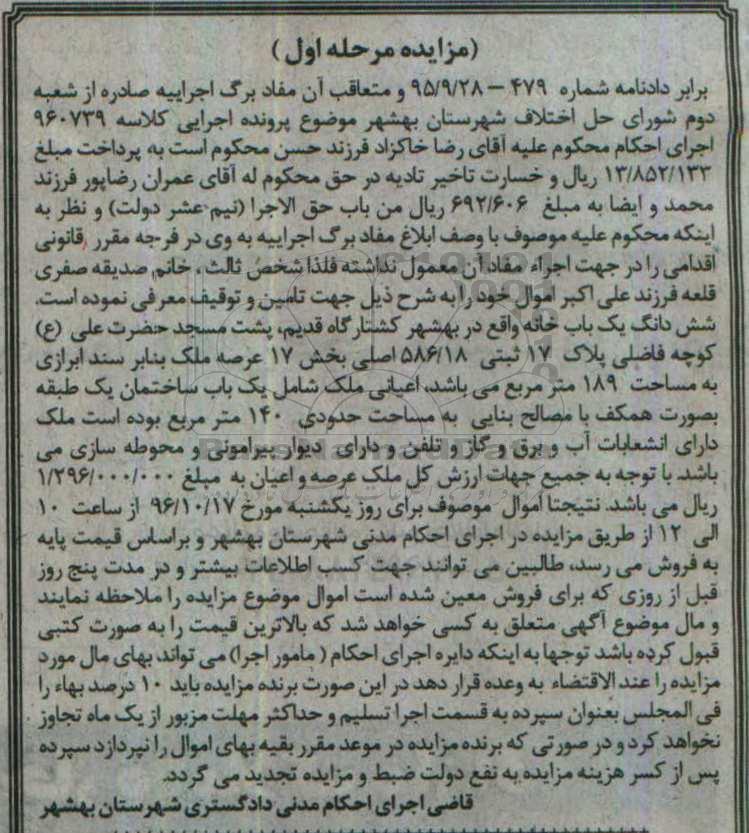 (مزایده مرحله اول)
برابر دادنامه شماره ۴۷۹ – ۹۵/۹/۲۸ و متعاقب آن مفاد برگ اجراییه صادره از شعبه
دوم شورای حل اختلاف شهرستان بهشهر موضوع پرونده اجرایی کلاسه ۹۶۰۷۳۹
اجرای احکام محکوم علیه آقای رضا خاکزاد فرزند حسن محکوم است به پرداخت مبلغ
۱۳/۸۵۲/۱۳۳ ریال و خسارت تاخیر تادیه در حق محکوم له آقای عمران رضاپور فرزند
محمد و ایضا به مبلغ ۶۹۲/۶۰۶ ریال من باب حق الاجرا (نیم عشر دولت) و نظر به
اینکه محکوم علیه موصوف با وصف ابلاغ مفاد برگ اجراییه به وی در فرجه مقرر قانونی
اقدامی را در جهت اجراء مفاد آن معمول نداشته فلذا شخص ثالث، خانم صدیقه صفری
قلعه فرزند علی اکبر اموال خود را به شرح ذیل جهت تامین و توقیف معرفی نموده است.
شش دانگ یک باب خانه واقع در بهشهر کشتارگاه قدیم، پشت مسجد حضرت علی (ع)
کوچه فاضلی پلاک ۱۷ ثبتی ۵۸۶/۱۸ اصلی بخش ۱۷ عرصه ملک بنابر سند ابرازی
به مساحت ۱۸۹ متر مربع می باشد، اعیانی ملک شامل یک باب ساختمان یک طبقه
بصورت همکف با مصالح بنایی به مساحت حدودی ۱۴۰ متر مربع بوده است ملک
دارای انشعابات آب و برق و گاز و تلفن و دارای دیوار پیرامونی و محوطه سازی می
باشد. با توجه به جمیع جهات ارزش کل ملک عرصه و اعیان به مبلغ ۱/۲۹۶/۰۰۰/۰۰۰
ریال می باشد. نتیجتا اموال موصوف برای روز یکشنبه مورخ ۹۶/۱۰/۱۷ از ساعت ۱۰
الی ۱۲ از طریق مزایده در اجرای احکام مدنی شهرستان بهشهر و براساس قیمت پایه
به فروش می رسد، طالبین می توانند جهت کسب اطلاعات بیشتر و در مدت پنج روز
قبل از روزی که برای فروش معین شده است اموال موضوع مزایده را ملاحظه نمایند
و مال موضوع آگهی متعلق به کسی خواهد شد که بالاترین قیمت را به صورت کتبی
قبول کرده باشد توجها به اینکه دایره اجرای احکام (مامور اجرا) می تواند، بهای مال مورد
مزایده را عند الاقتضاء به وعده قرار دهد در این صورت برنده مزایده باید ۱۰ درصد بهاء را
فی المجلس بعنوان سپرده به قسمت اجرا تسلیم و حداکثر مهلت مزبور از یک ماه تجاوز
نخواهد کرد و در صورتی که برنده مزایده در موعد مقرر بقیه بهای اموال را نپردازد سپرده
پس از کسر هزینه مزایده به نفع دولت ضبط و مزایده تجدید می گردد.
قاضی اجرای احکام مدنی دادگستری شهرستان بهشهر